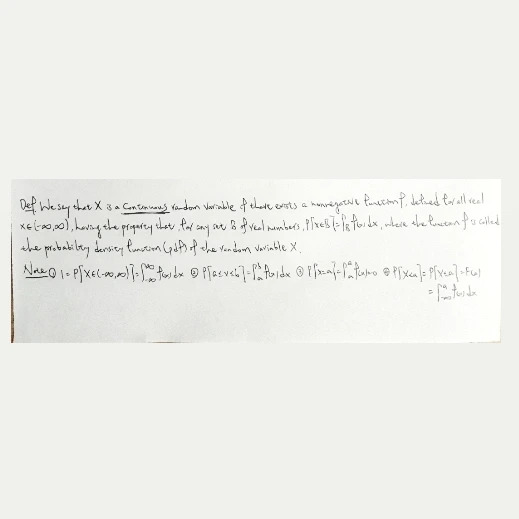 Def. We say that X is a Continuous random variable if there exists a nonnegative function f, defined for all real
x∈(-∞,∞), having the property that for any set B of real numbers, P{X∈B}=∫_B f(x)dx, where the function f is called
the probability density function (pdf) of the random variable X.
Note ① 1=P{X∈(-∞,∞)}=∫_{-∞}^{∞} f(x)dx ② P{a≤x≤b}=∫_a^b f(x)dx ③ P{x=a}=∫_a^a f(x)=0 ④ P{X<a}=P{X≤a}=F(a)
=∫_{-∞}^a f(x)dx